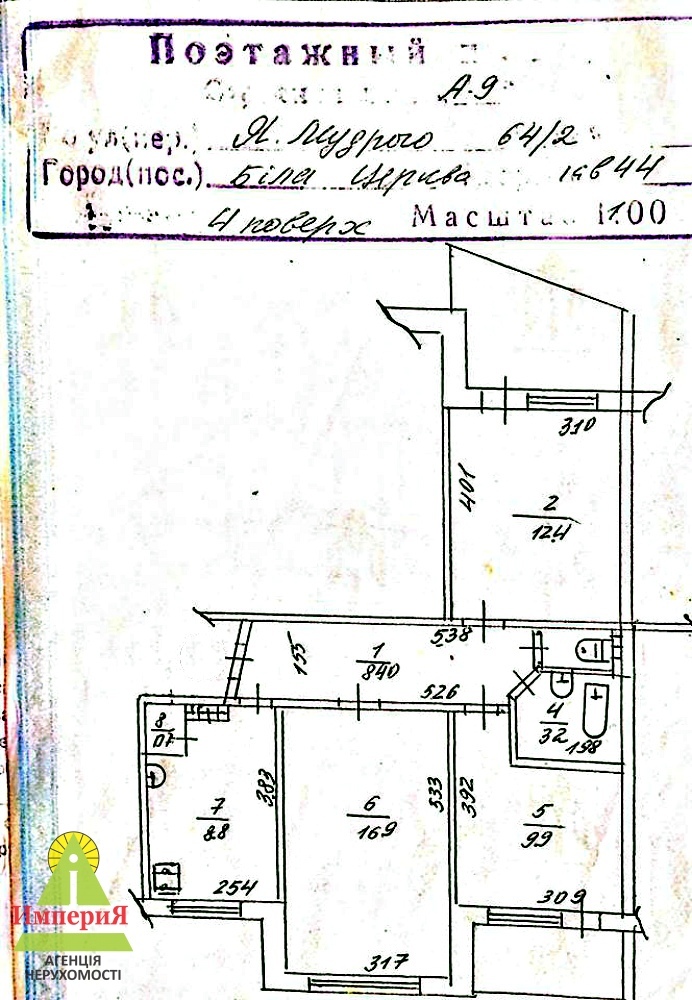 Поэтажный
А-9
ул(пер.) Я. Мудрого 64/2
Город(пос.) Біла Церква кв 44
4 поверх Масштаб 1:100
310
401
2
12.4
538
155
1
8.40
526
4
3.2
198
8
0.7
383
533
392
7
8.8
6
16.9
5
9.9
254
309
317
ИмпериЯ
АГЕНЦІЯ
НЕРУХОМОСТІ